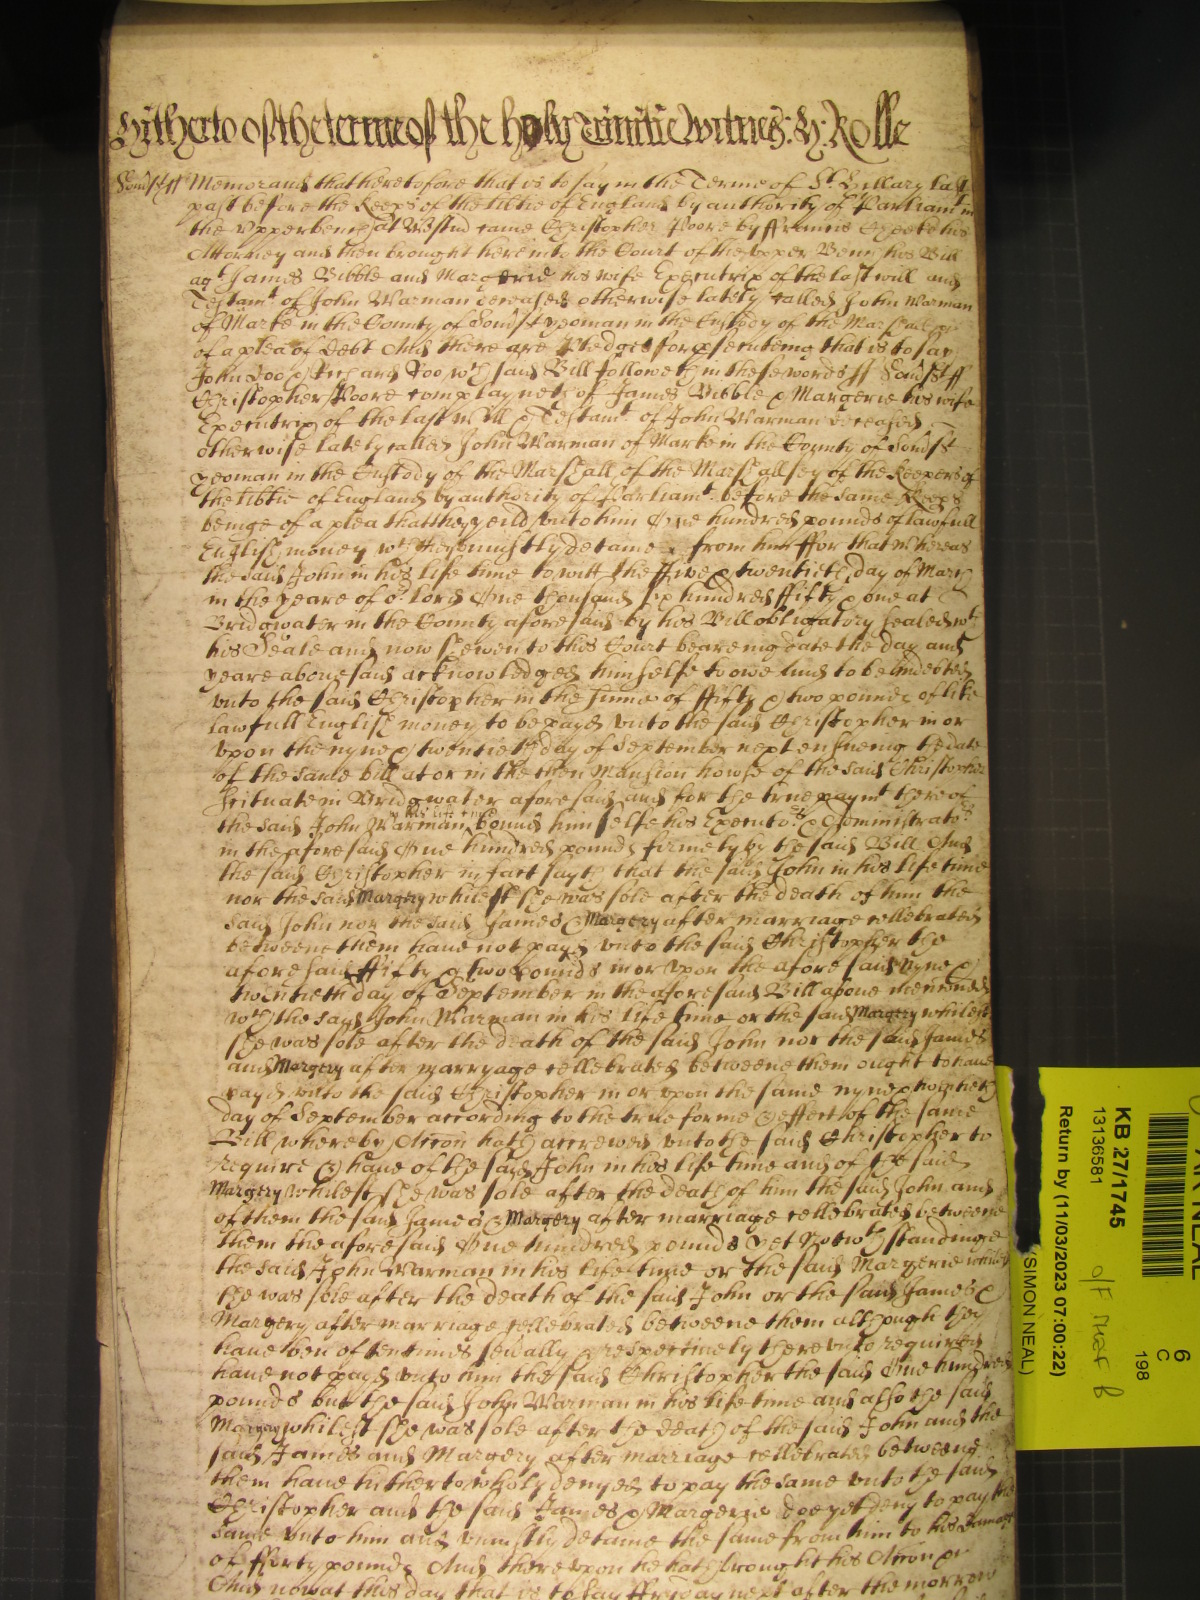 Hitherto of the terme of the holy Trinitie Witnes: H: Rolle
Somst ss Memorand that heretofore that is to say in the Terme of St. Hillary last
past before the Keeps of the libtie of England by authority of Parliamt in
the Upper bench at Westmr came Christopher Poore by ffrancis his
Attorney and then brought here into the Court of the upper Bench his Bill
agt James Bibble and Margerie his wife Executrix of the last will and
Testamt of John Warman deceased otherwise lately called John Warman
of Marke in the County of Somst yeoman in the Custody of the Marshall &c
of a plea of Debt And there are Pledges for psecuteing that is to say
John Doo & Richard Roo wch said Bill followeth in these words ss Somst ss
Christopher Poore complayneth of James Bibble & Margerie his wife
Executrix of the last Will & Testamt of John Warman deceased
otherwise lately called John Warman of Marke in the County of Somst
yeoman in the Custody of the Marshall of the Marshallsey of the Keepers of
the libtie of England by authority of Parliamt before the same Keeps
beinge of a plea that they yeild unto him One hundred pounds of lawfull
English money wch they uniustly detaine from him ffor that Whereas
the said John in his life time to witt the ffive & twentieth day of March
in the yeare of or Lord One thousand six hundred ffifty & one at
Bridgwater in the County aforesaid by his Bill obligatory sealed wth
his Seale and now shewen to this Court beareing date the day and
yeare abovesaid acknowledged himselfe to owe and to be indebted
unto the said Christopher in the summe of ffifty & two pounds of like
lawfull English money to be payd unto the said Christopher in or
upon the nyne & twentieth day of September next ensueing the date
of the same bill at or in the then Mansion howse of the said Christopher
scituate in Bridgwater aforesaid and for the true paymt thereof
in his life time
the said John Warman bound himselfe his Executors & Administrators
in the aforesaid One hundred pounds firmely by the said Bill And
the said Christopher in fact sayth that the said John in his life time
nor the said Margery whilest she was sole after the death of him the
said John nor the said James & Margery after marriage cellebrated
betweene them have not payd unto the said Christopher the
aforesaid ffifty & two pounds in or upon the aforesaid Nyne &
twentieth day of September in the aforesaid Bill above mencioned
wch the said John Warman in his life time or the said Margery whilest
she was sole after the death of the said John nor the said James
and Margery after marryage cellebrated betweene them ought to have
payd unto the said Christopher in or upon the same nyne & twentieth
day of September according to the true forme & effect of the same
Bill whereby Accon hath accrewed unto the said Christopher to
require & have of the said John in his life time and of the said
Margery whilest she was sole after the death of him the said John and
of them the said James & Margery after marriage cellebrated betweene
them the aforesaid One hundred pounds Yet Notwthstandinge
the said John Warman in his life time or the said Margerie whilest
she was sole after the death of the said John or the said James &
Margery after marriage cellebrated betweene them although they
have ben often times sevally & respectively thereunto required
have not payd unto him the said Christopher the said One hundred
pounds but the said John Warman in his life time and also the said
Margery whilest she was sole after the death of the said John and the
said James and Margery after marriage cellebrated betweene
them have hitherto wholy denyed to pay the same unto the said
Christopher and the said James & Margerie doe yet deny to pay the
same unto him and uniustly detaine the same from him to his Damage
of fforty pounds And thereupon he hath brought his Accon &c
And now at this day that is to say ffryday next after the morrow
6
C
198
KB 27/1745
13136581
Return by (11/03/2023 07:00:22)
(SIMON NEAL)